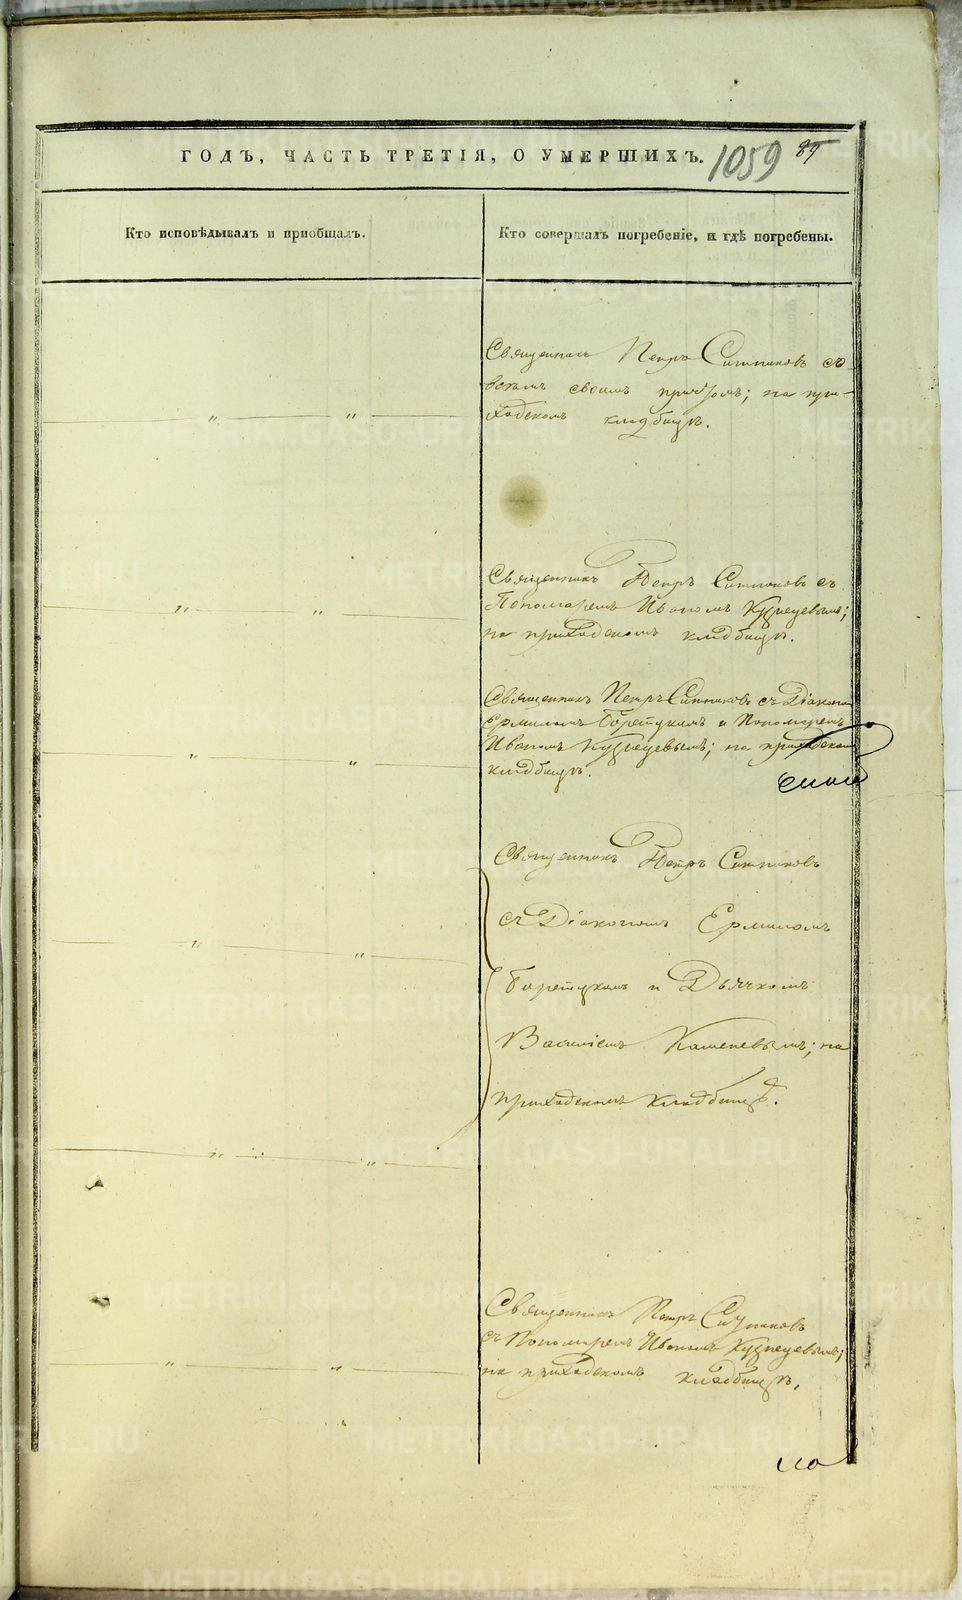 ГОДЪ, ЧАСТЬ ТРЕТІЯ, О УМЕРШИХЪ.
1059
Кто исповѣдывалъ и пріобщалъ.
Кто совершалъ погребеніе, и гдѣ погребены.
Священникъ Петръ Ситниковъ съ
всѣмъ своимъ причтомъ; на при-
ходскомъ кладбищѣ.
Священникъ Петръ Ситниковъ съ
Пономаремъ Иваномъ Кузнецевымъ;
на приходскомъ кладбищѣ.
Священникъ Петръ Ситниковъ съ Діакономъ
Ермиломъ и Пономаремъ
Иваномъ Кузнецевымъ; на приходскомъ
кладбищѣ.
Священникъ Петръ Ситниковъ
съ Діакономъ Ермиломъ
и Дьячкомъ
Василіемъ Каменевымъ; на
приходскомъ кладбищѣ.
Священникъ Петръ Ситниковъ
съ Пономаремъ Иваномъ Кузнецевымъ;
на приходскомъ кладбищѣ.
METRIKI.GASO-URAL.RU